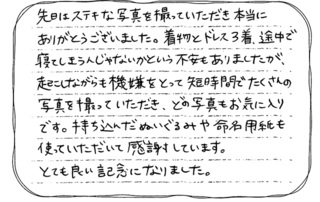 先日はステキな写真を撮っていただき本当に
ありがとうございました。着物とドレス3着、途中で
寝てしまうんじゃないかという不安もありましたが、
起こしながらも機嫌をとって短時間でたくさんの
写真を撮っていただき、どの写真もお気に入り
です。持ち込んだぬいぐるみや命名用紙も
使っていただいて感謝しています。
とても良い記念になりました。